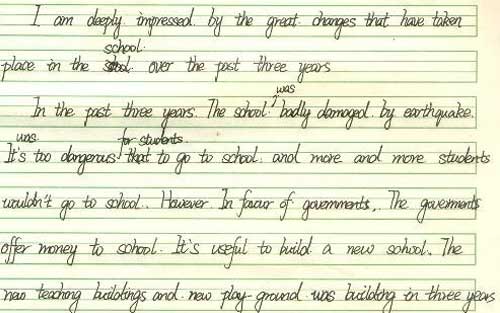 I am deeply impressed by the great changes that have taken
school.
place in the over the past three years
was
In the past three years. The school badly damaged by earthquake.
was for students
It's too dangerous that to go to school. and more and more students
wouldn't go to school. However. In favor of governments,. The goverments
offer money to school. It's useful to build a new school. The
new teaching buildings and new play-ground was building in three years